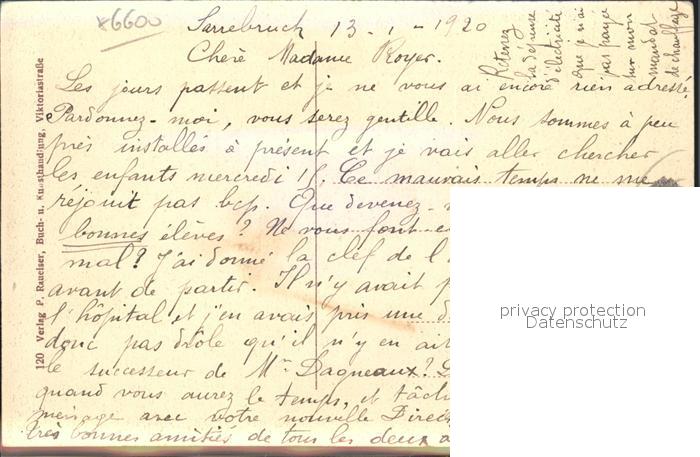 x6600
Sarrebruck 13-1-1920
Chère Madame Royer.
Les jours passent et je ne vous ai encore rien adressé.
Pardonnez-moi, vous serez gentille. Nous sommes à peu
près installés à présent et je vais aller chercher
les enfants mercredi Ce mauvais temps ne me
réjouit pas bcp. Que devenez-
bonnes élèves? Ne vous font
mal? J'ai donné la clef de l'
avant de partir. Il n'y avait
l'hôpital et j'en avais pris une
donc pas drôle qu'il n'y en ait
le successeur de Mr Dagneaux?
quand vous aurez le temps, et
ménage avec votre nouvelle
très bonnes amitiés de tous les deux
Retenez
la dépense
d'électricité
que je n'ai
pas payée
sur mon
mandat
de chauffage
120 Verlag P. Raueiser, Buch- u. Kunsthandlung, Viktoriastraße
privacy protection
Datenschutz